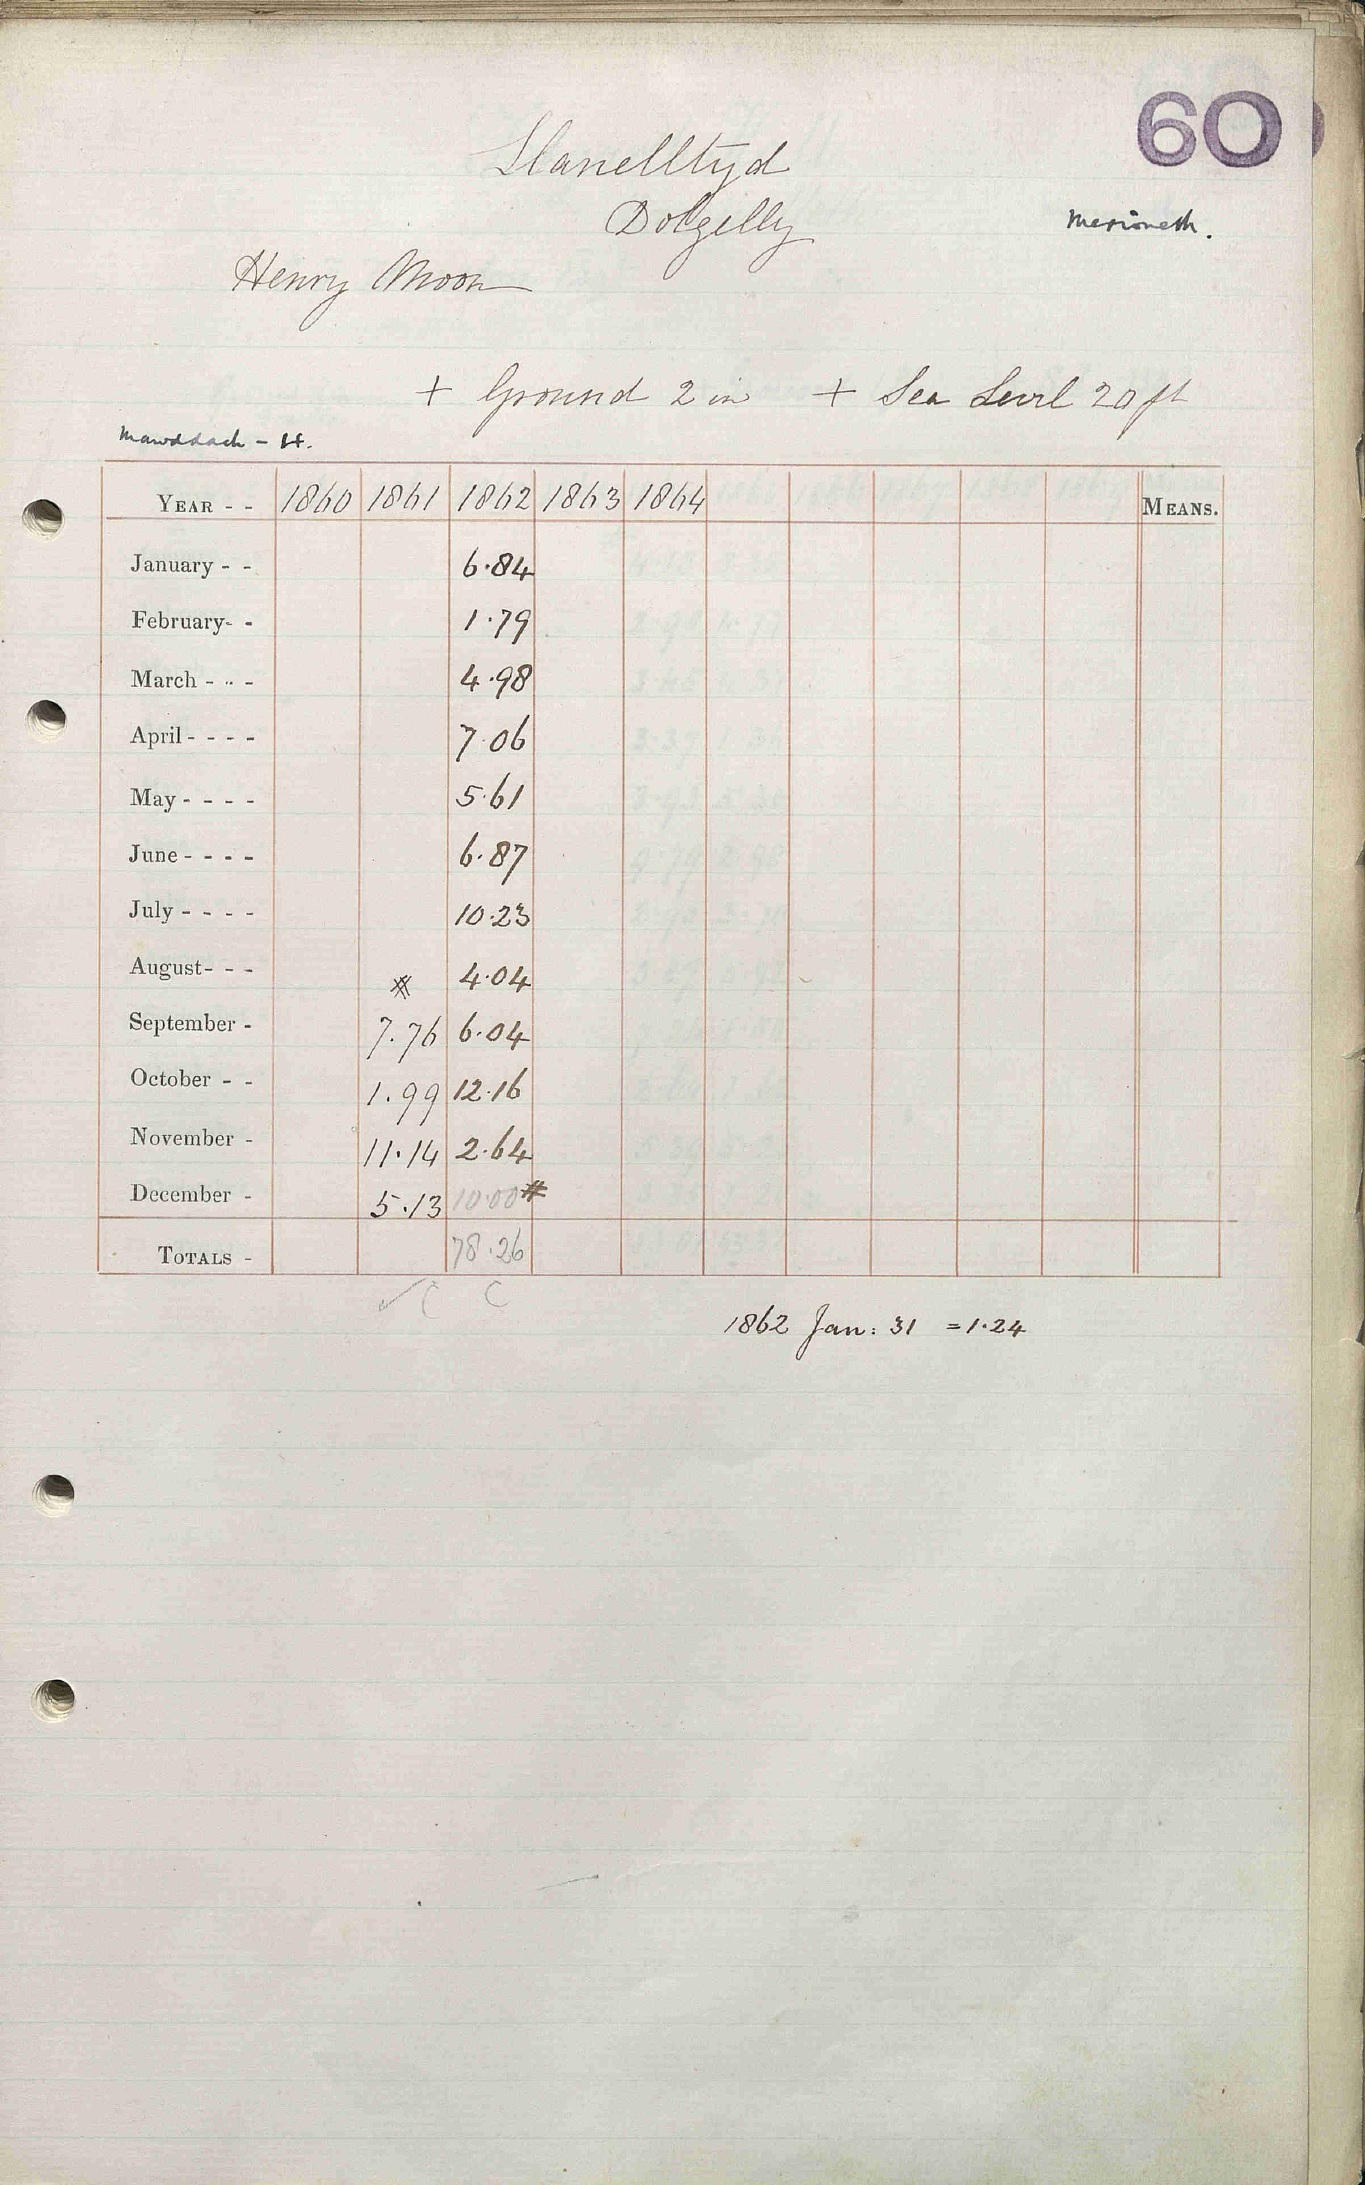 60
Llanelltyd
Dolgelly
Merioneth.
Henry Moon
+ Ground 2 in + Sea Level 20 ft
Mawddach - H.
YEAR - - 1860 1861 1862 1863 1864 MEANS.
January - - 6.84
February- - 1.79
March - - - 4.98
April - - - - 7.06
May - - - - 5.61
June - - - - 6.87
July - - - - 10.23
August- - - # 4.04
September - 7.76 6.04
October - - 1.99 12.16
November - 11.14 2.64
December - 5.13 10.00 #
TOTALS - 78.26
✓ C C
1862 Jan: 31 = 1.24